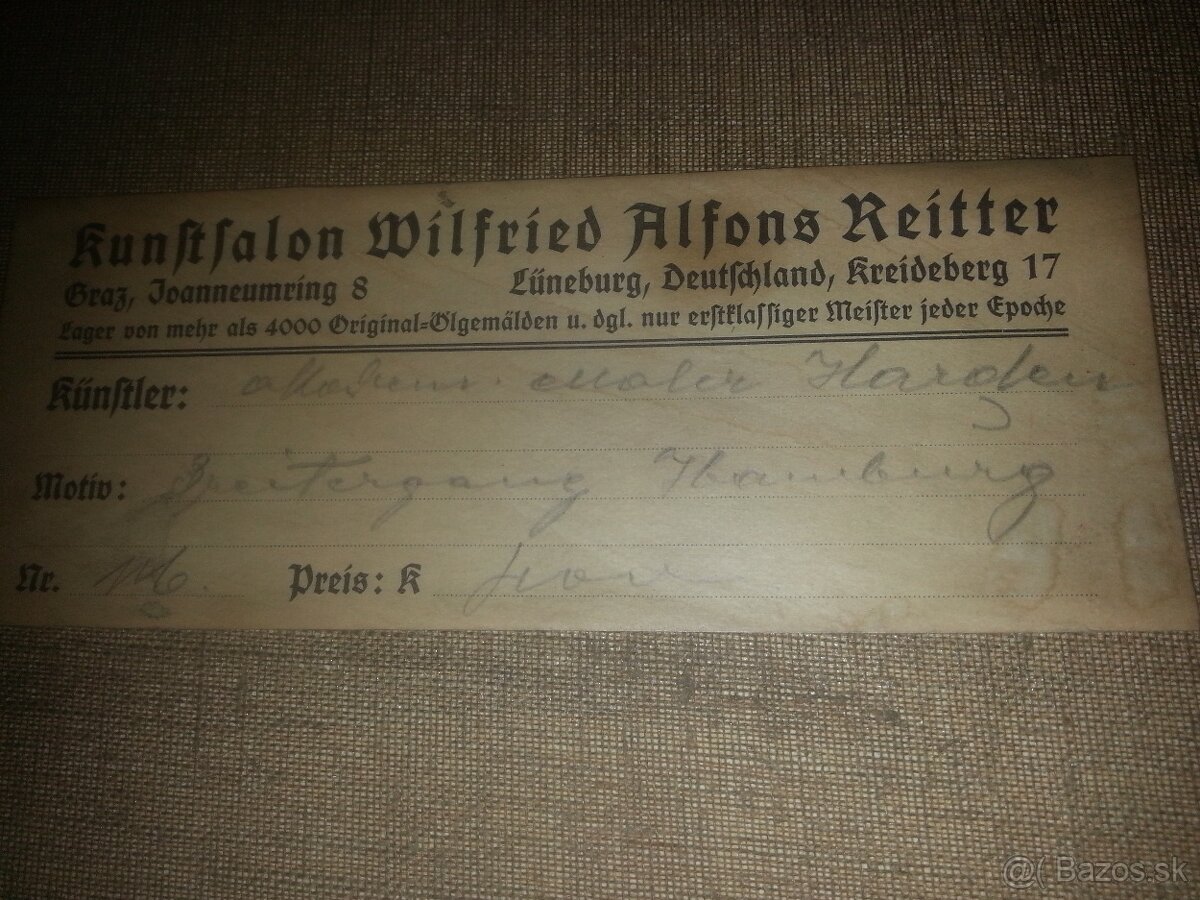 Kunstsalon Wilfried Alfons Reitter
Graz, Joanneumring 8 Lüneburg, Deutschland, Kreideberg 17
Lager von mehr als 4000 Original-Ölgemälden u. dgl. nur erstklassiger Meister jeder Epoche
Künstler: Maler
Motiv: Breitergang Hamburg
Nr. 106. Preis: K
@( Bazos.sk